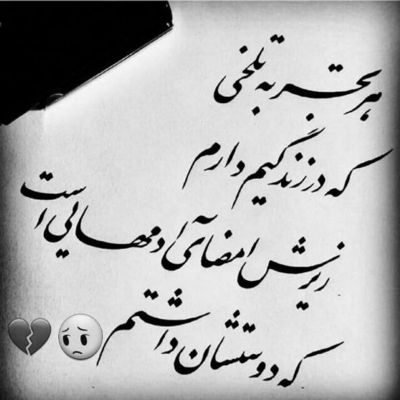 هر تجربه تلخی
که در زندگیم دارم
زیرش امضای آدمهایی است
که دوستشان داشتم 💔😔